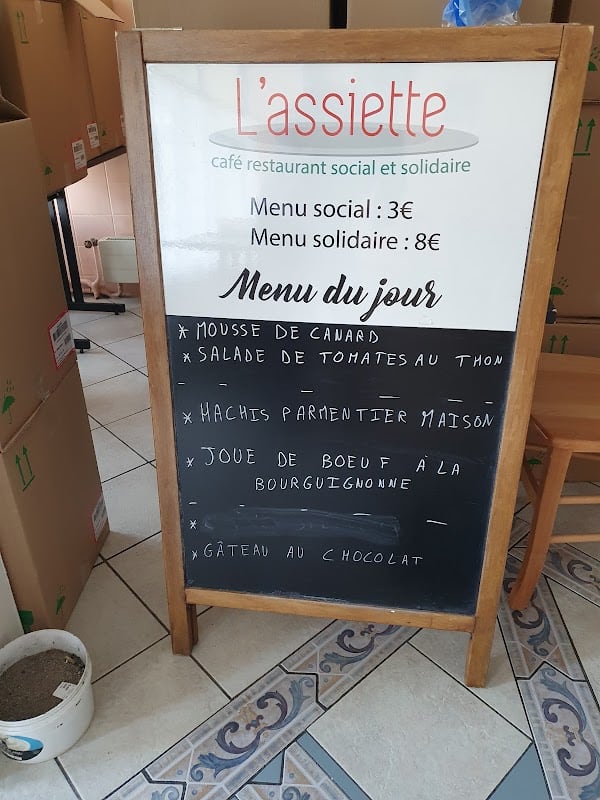 L'assiette
café restaurant social et solidaire
Menu social : 3€
Menu solidaire : 8€
Menu du jour
* MOUSSE DE CANARD
* SALADE DE TOMATES AU THON
* HACHIS PARMENTIER MAISON
* JOUE DE BOEUF À LA
BOURGUIGNONNE
*
* GÂTEAU AU CHOCOLAT